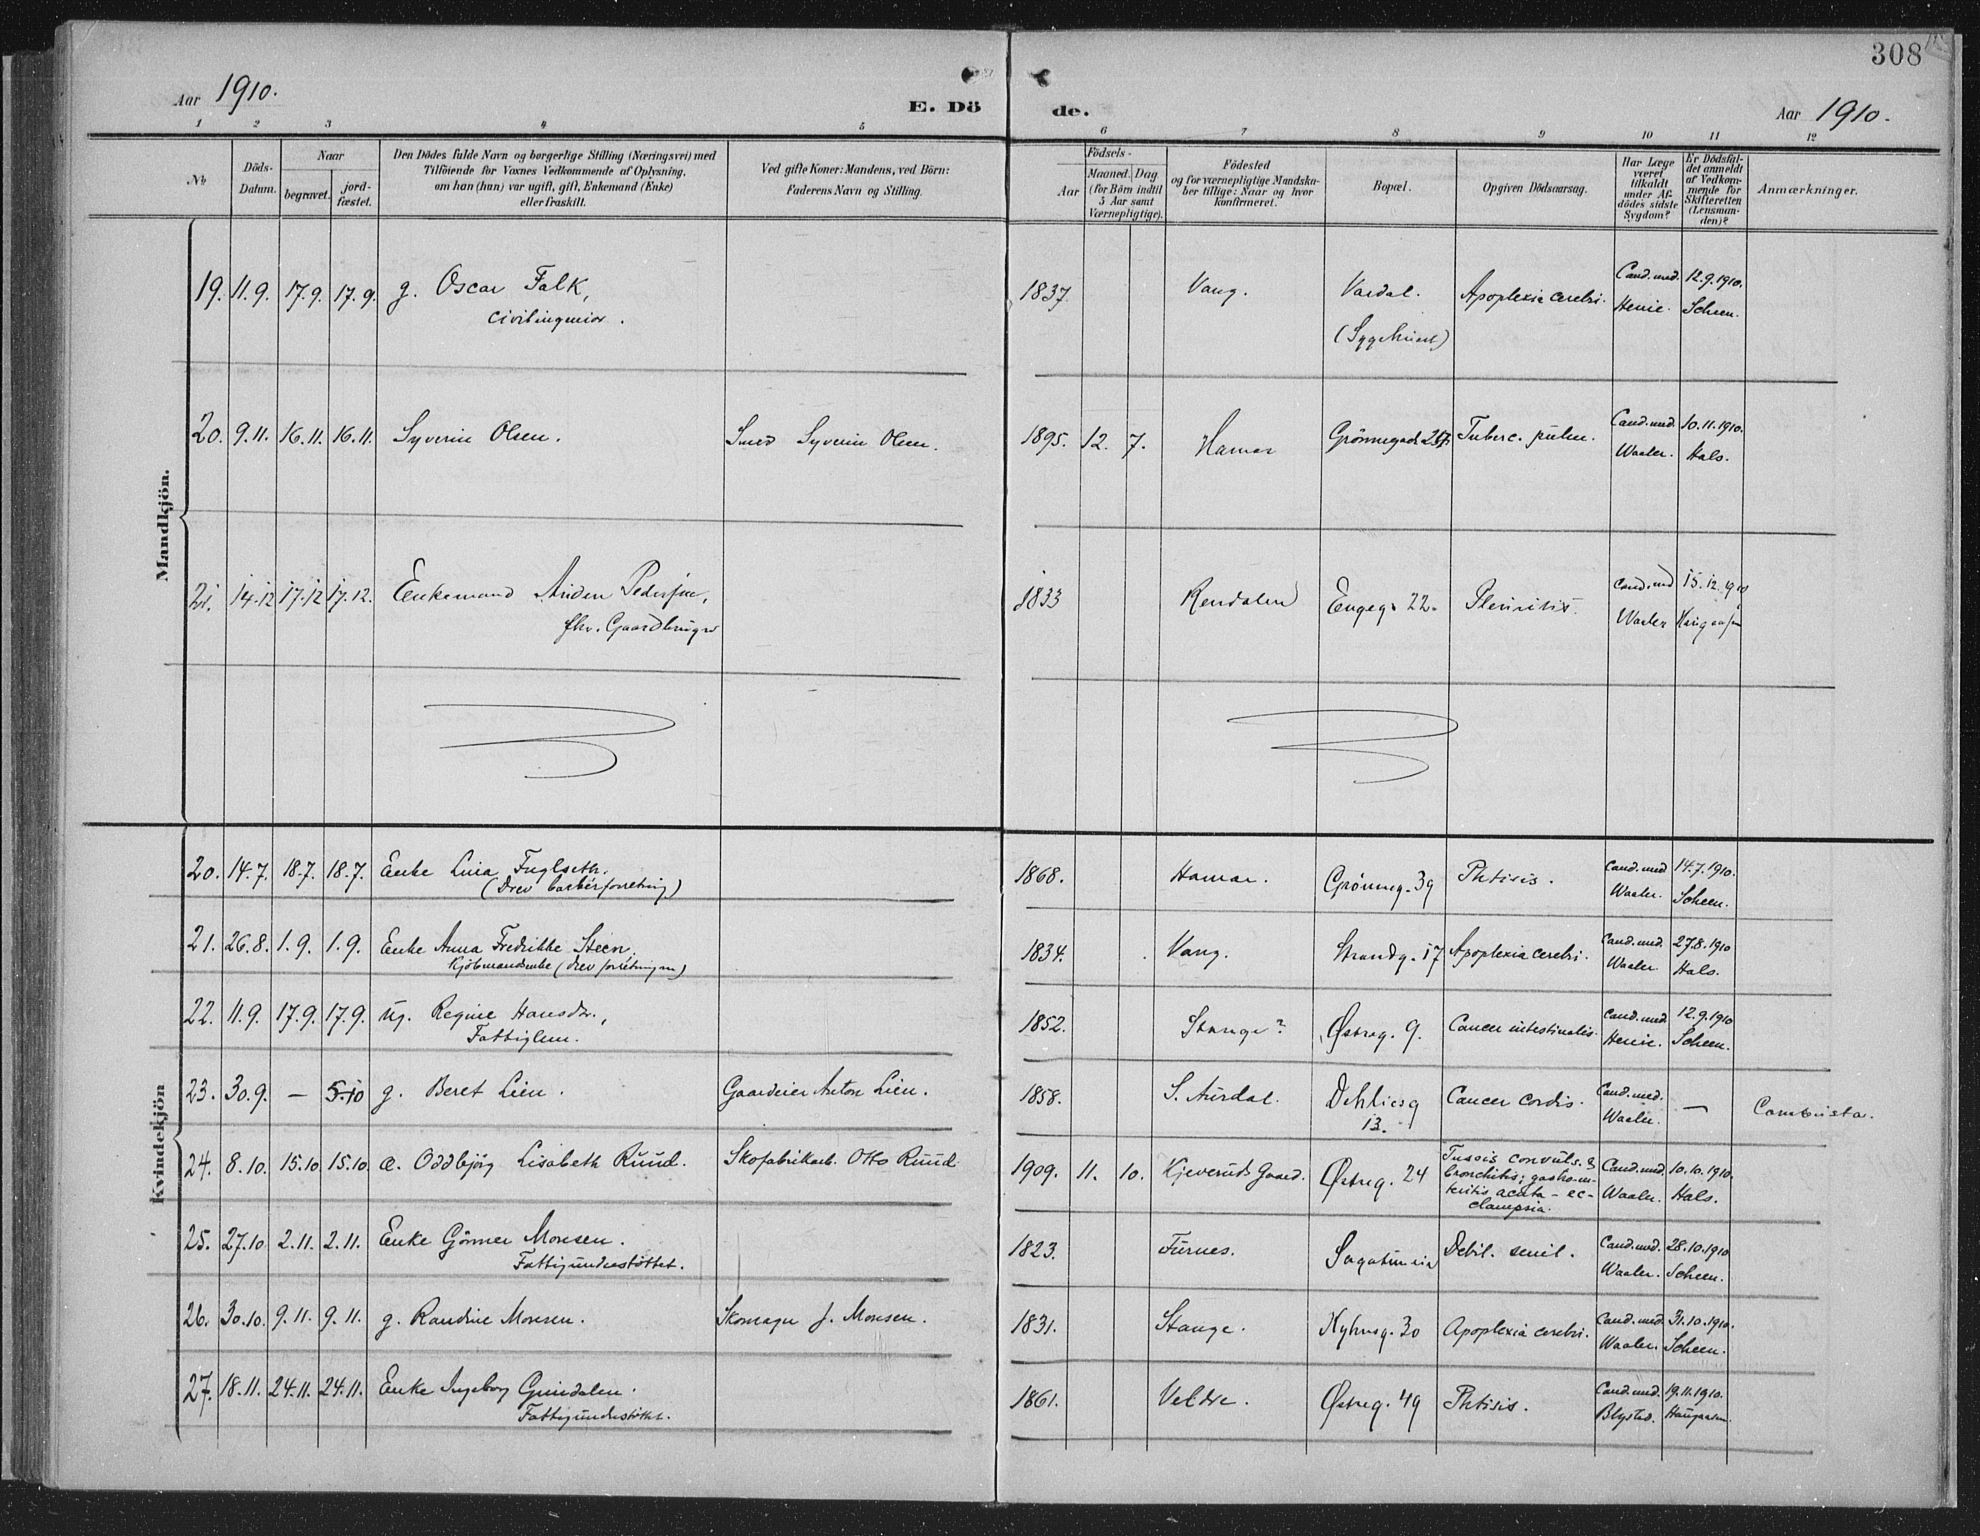 308
Aar 1910.
E. Dö de.
Aar 1910.
1 2 3 4 5 6 7 8 9 10 11 12
No
Döds-Datum.
Naar
begravet.
jord-fæstet.
Den Dödes fulde Navn og borgerlige Stilling (Næringsvei) med
Tilföiende for Voxnes Vedkommende af Oplysning,
om han (hun) var ugift, gift, Enkemand (Enke)
eller fraskilt.
Ved gifte Koner: Mandens, ved Börn:
Faderens Navn og Stilling.
Födsels-
Aar
Maaned. Dag
(for Börn indtil
5 Aar samt
Værnepligtige).
Födested
og for værnepligtige Mandska-
ber tillige: Naar og hvor
konfirmeret.
Bopæl.
Opgiven Dödsaarsag.
Har Læge
været
tilkaldt
under Af-
dödes sidste
Sygdom?
Er Dödsfal-
det anmeldt
af Vedkom-
mende for
Skifteretten
(Lensman-
den)?
Anmærkninger.
Mandkjön.
19. 11.9. 17.9. 17.9. g. Oscar Falk, 1837. Vang. Vardal. Apoplexia cerebri. Cand.med. 12.9.1910.
civilingeniør. Henie. Scheen.
20. 9.11. 16.11. 16.11. Syverin Olsen. Smed Syverin Olsen. 1895. 12. 7. Hamar Tuberc. pulm. Cand.med 10.11.1910.
Waaler. Hals.
21. 14.12 17.12 17.12. Enkemand Pedersen, 1833 Rendalen Engeg. 22. Pleuritis. Cand.med 15.12.1910
fhv. Gaardbruger Waaler
Kvindekjön
20. 14.7. 18.7. 18.7. Enke Lina Fuglseth. 1868. Hamar. Grönneg. 39 Phtisis. Cand.med 14.7.1910.
(Drev barbérforretning) Waaler. Scheen.
21. 26.8. 1.9. 1.9. Enke Anna Fredrikke Steen, 1834. Vang. Strandg. 17 Apoplexia cerebri. Cand.med. 27.8.1910
Kjöbmandsenke (drev forretningen) Waaler Hals.
22. 11.9. 17.9. 17.9. ug. Regine Hansdr., 1852. Stange? Østreg. 9. Cancer intestinalis. Cand.med 12.9.1910
Fattiglem. Henie. Scheen.
23. 30.9. — 5.10 g. Beret Lien. Gaardeier Anton Lien. 1858. S. Aurdal. Dehliesg 13. Cancer cordis. Cand.med. Waaler. — Combusta.
24. 8.10. 15.10 15.10. æ. Oddbjörg Lisabeth Ruud. Skofabrikarb. Otto Ruud. 1909. 11. 10. Kjeverud Gaard. Østreg. 24 Tussis convuls. &
bronchitis; gastroen-
teritis acuta – ec-
clampsia. Cand.med. Waaler. 10.10.1910. Hals.
25. 27.10 2.11. 2.11. Enke Monsen. 1823. Furnes. Debil. senil. Cand.med. 28.10.1910
Fattigunderstöttet. Waaler. Scheen.
26. 30.10. 9.11. 9.11. g. Randine Monsen. Skomager J. Monsen. 1831. Stange. Apoplexia cerebri. Cand.med. 31.10.1910.
Waaler. Scheen.
27. 18.11. 24.11. 24.11. Enke Ingeborg Grindalen. 1861. Veldre. Østreg. 49 Phtisis. Cand.med. 19.11.1910.
Fattigunderstöttet. Blystad. Haugaasen.